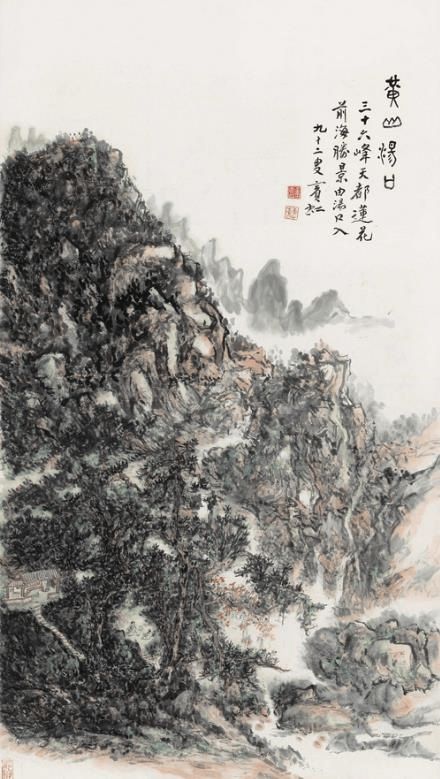 黄山湯口
三十六峰天都蓮花
前海勝景由湯口入
九十二叟賓虹